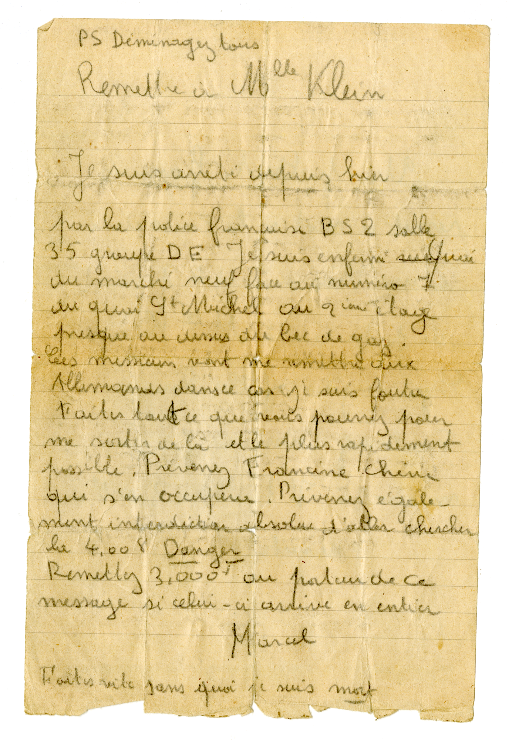 PS Déménagez tous
Remettre à Mlle Klein
Je suis arrêté depuis hier
par la police française BS2 salle
35 groupe DE Je suis enfermé quai
du marché neuf face au numéro 7
du quai St Michel au 2ième étage
presque au dessus du bec de gaz.
Ces messieurs vont me remettre aux
Allemands dans ce cas je suis foutu
Faites tout ce que vous pourrez pour
me sortir de là et le plus rapidement
possible. Prévenez Francine
qui s'en occupera. Prévenez égale-
ment, interdiction absolue d'aller chercher
la Danger
Remettez 3.000F au porteur de ce
message si celui-ci arrive en entier
Marcel
Faites vite sans quoi je suis mort